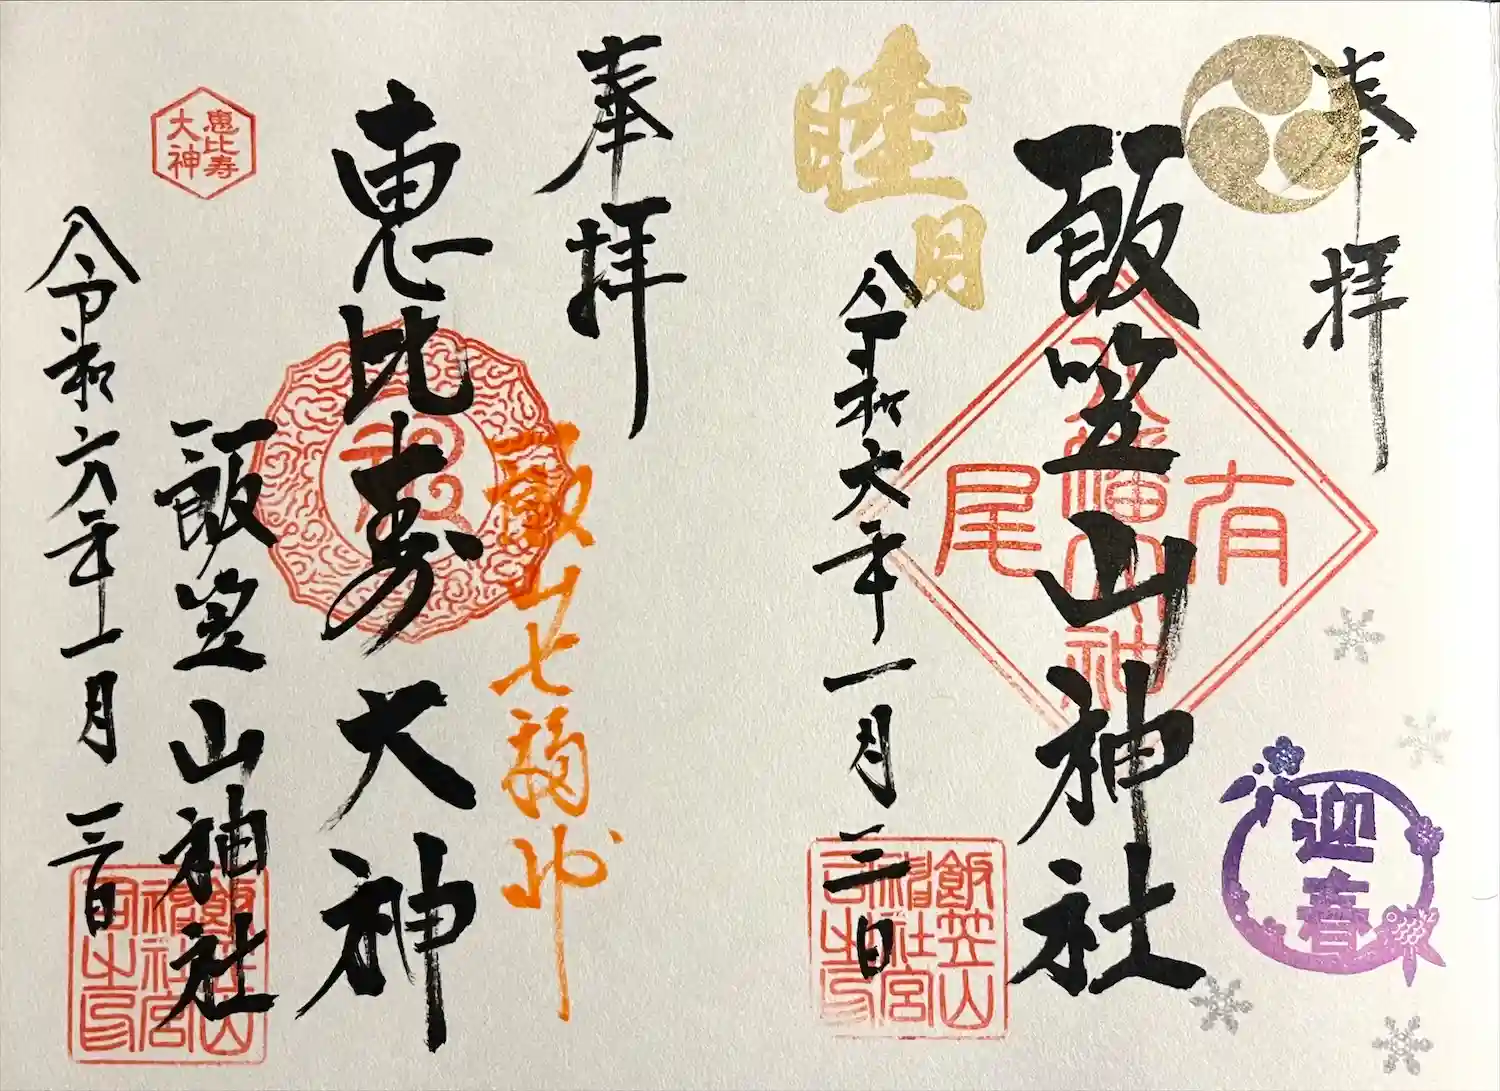 奉拝
飯笠山神社
有尾
迎春
睦月
令和六年一月三日
飯笠山
神社宮
司之印
奉拝
飯山七福神
恵比寿大神
飯笠山神社
恵比寿
大神
令和六年一月三日
飯笠山
神社宮
司之印